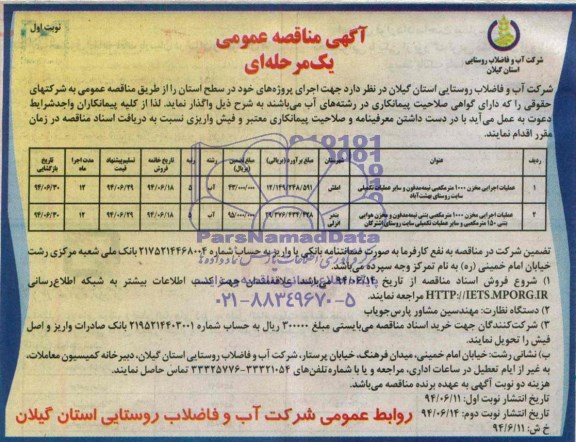 نوبت اول
آگهی مناقصه عمومی
یک‌مرحله‌ای
شرکت آب و فاضلاب روستایی
استان گیلان
شرکت آب و فاضلاب روستایی استان گیلان در نظر دارد جهت اجرای پروژه‌های خود در سطح استان را از طریق مناقصه عمومی به شرکتهای
حقوقی را که دارای گواهی صلاحیت پیمانکاری در رشته‌های آب می‌باشند به شرح ذیل واگذار نماید. لذا از کلیه پیمانکاران واجدشرایط
دعوت به عمل می‌آید با در دست داشتن معرفینامه و صلاحیت پیمانکاری معتبر و فیش واریزی نسبت به دریافت اسناد مناقصه در زمان
مقرر اقدام نمایند.
ردیف عنوان شهرستان مبلغ برآورد (بریالی) مبلغ تضمین (ریال) رشته رتبه تاریخ خاتمه فروش تسلیم‌پیشنهاد قیمت مدت اجرا ماه تاریخ بازگشایی
۱ عملیات اجرایی مخزن ۱۰۰۰ مترمکعبی نیمه‌مدفون و سایر عملیات تکمیلی سایت روستای بهشت‌آباد املش ۱۲/۱۴۹/۲۴۸/۵۹۱ آب ۵ ۹۴/۰۶/۱۸ ۹۴/۰۶/۲۹ ۱۲ ۹۴/۰۶/۳۰
۲ عملیات اجرایی مخزن ۱۰۰۰ مترمکعبی بتنی نیمه‌مدفون و مخزن هوایی بتنی ۱۵۰ مترمکعبی و سایر عملیات تکمیلی سایت روستای اشترکان بندر انزلی آب ۵ ۹۴/۰۶/۱۸ ۹۴/۰۶/۲۹ ۱۲ ۹۴/۰۶/۳۰
ParsNamadData
پایگاه اطلاع رسانی
۰۲۱-۸۸۳۴۹۶۷۰-۵
تضمین شرکت در مناقصه به نفع کارفرما به صورت ضمانتنامه بانکی یا واریز به حساب شماره ۲۱۷۵۲۱۴۴۶۸۰۰۴ بانک ملی شعبه مرکزی رشت
خیابان امام خمینی (ره) به نام تمرکز وجه سپرده می‌باشد.
۱) شروع فروش اسناد مناقصه از تاریخ ۹۴/۰۶/۱۴ می‌باشد. علاقمندان جهت کسب اطلاعات بیشتر به شبکه اطلاع‌رسانی
HTTP://IETS.MPORG.IR مراجعه نمایند.
۲) دستگاه نظارت: مهندسین مشاور پارس‌جویاب
۳) شرکت‌کنندگان جهت خرید اسناد مناقصه می‌بایستی مبلغ ۳۰۰۰۰۰ ریال به حساب شماره ۲۱۹۵۲۱۴۴۰۳۰۰۱ بانک صادرات واریز و اصل
فیش را تحویل نمایند.
ب) نشانی رشت: خیابان امام خمینی، میدان فرهنگ، خیابان پرستار، شرکت آب و فاضلاب روستایی استان گیلان، دبیرخانه کمیسیون معاملات،
به غیر از ایام تعطیل در ساعات اداری، مراجعه و یا با شماره تلفن‌های ۳۳۳۲۱۰۵۴-۳۳۳۲۵۷۷۶ تماس حاصل نمایند.
هزینه دو نوبت آگهی به عهده برنده مناقصه می‌باشد.
تاریخ انتشار نوبت اول: ۹۴/۰۶/۱۱
تاریخ انتشار نوبت دوم: ۹۴/۰۶/۱۴
خ ش: ۹۴/۶/۱۱
روابط عمومی شرکت آب و فاضلاب روستایی استان گیلان